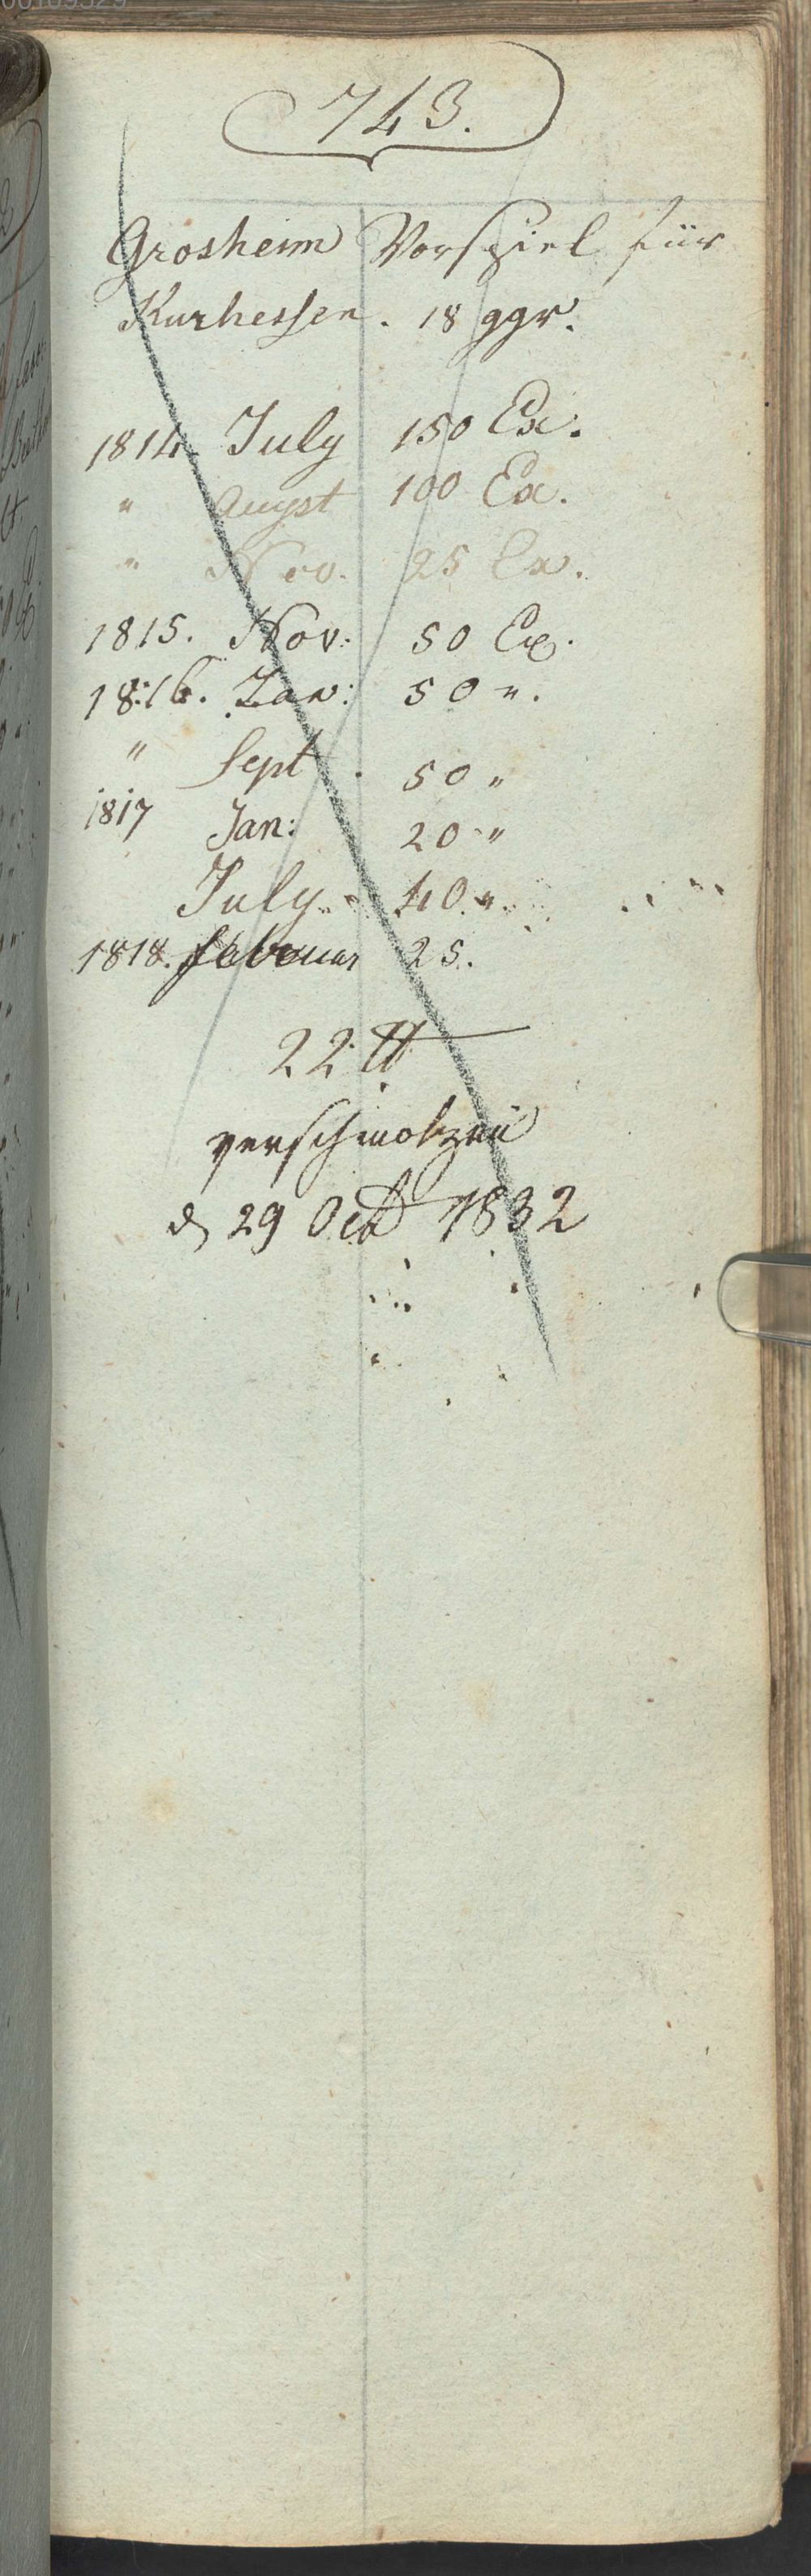 743.
Grosheim Vorspiel für
Kurhessen. 18 ggr.
1814. July 150 Ex.
" Augst 100 Ex.
" Nov. 25 Ex.
1815. Nov: 50 Ex.
1816. Jan: 50 ".
" Sept. 50 "
1817 Jan: 20 "
July 40 ".
1818. Februar 25.
22 ℔
verschmolzen
d 29 Oct 1832